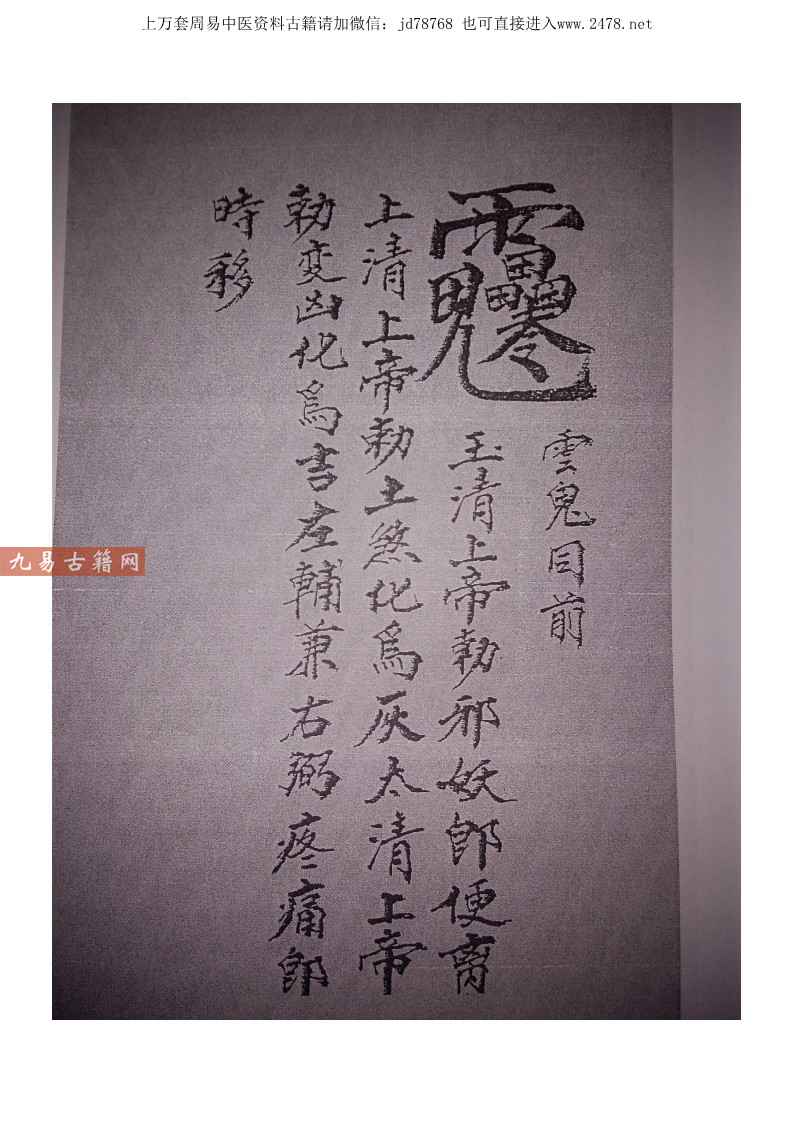 上万套周易中医资料古籍请加微信：jd78768 也可直接进入www.2478.net
雲鬼同前
玉清上帝勅邪妖即便离
上清上帝勅土煞化為灰太清上帝
勅变凶化為吉左輔兼右弼疼痛即
時移
九易古籍网